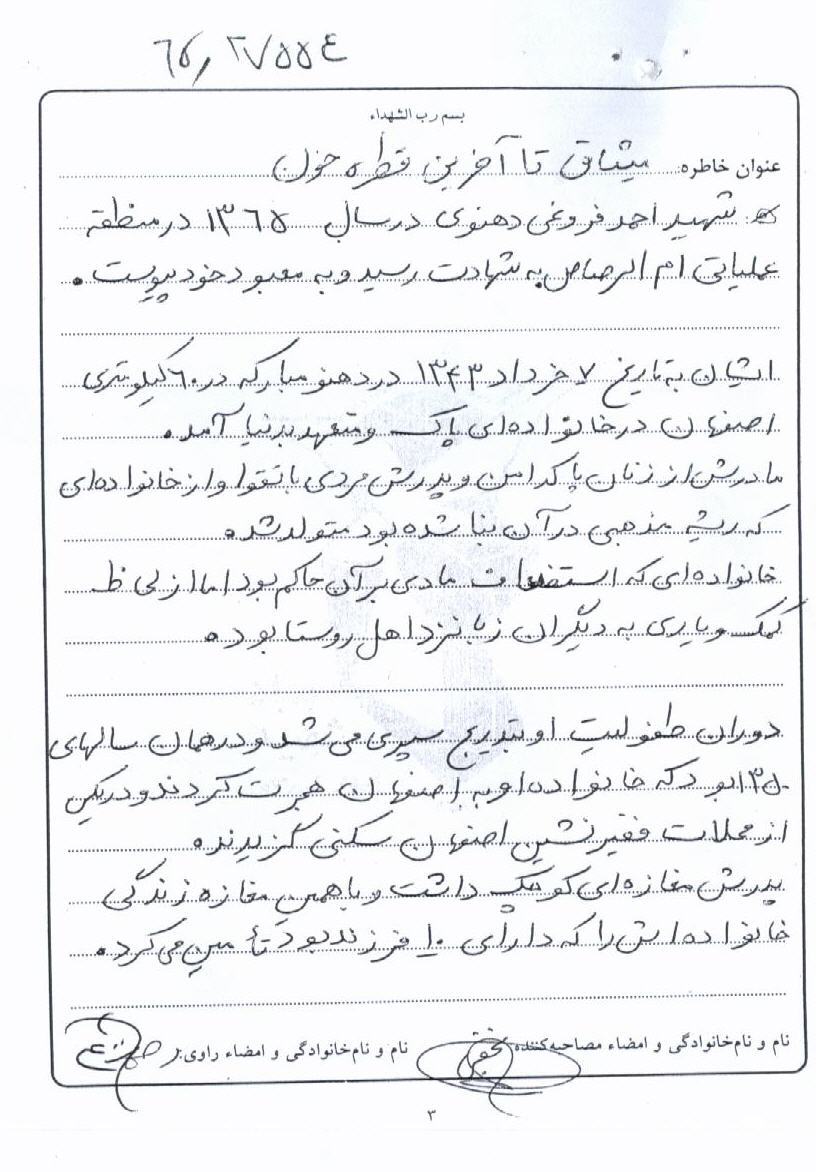 ۶۵,۲۷۵۵۴
بسم رب الشهداء
عنوان خاطره: میثاق تا آخرین قطره خون
شهید احمد فروغی دهنوی در سال ۱۳۶۵ در منطقه
عملیاتی ام الرصاص به شهادت رسید و به معبود خود پیوست.
ایشان به تاریخ ۷ خرداد ۱۳۴۳ در دهنو مبارکه در ۶۰ کیلومتری
اصفهان در خانواده‌ای پاک و متعهد بدنیا آمد.
مادرش از زنان پاکدامن و پدرش مردی با تقوا و از خانواده‌ای
که ریشه مذهبی در آن بنا شده بود متولد شد.
خانواده‌ای که استضعاف مادی بر آن حاکم بود اما از لحاظ
کمک و یاری به دیگران زبانزد اهل روستا بود.
دوران طفولیت او بتدریج سپری می شد و در همان سالهای
۱۳۵۰ بود که خانواده او به اصفهان هجرت کردند و در یکی
از محلات فقیر نشین اصفهان سکنی گزیدند.
پدرش مغازه‌ای کوچک داشت و با همین مغازه زندگی
خانواده‌اش را که دارای ۱۰ فرزند بود تأمین می کرد.
نام و نام خانوادگی و امضاء مصاحبه کننده: نام و نام خانوادگی و امضاء راوی:
۳